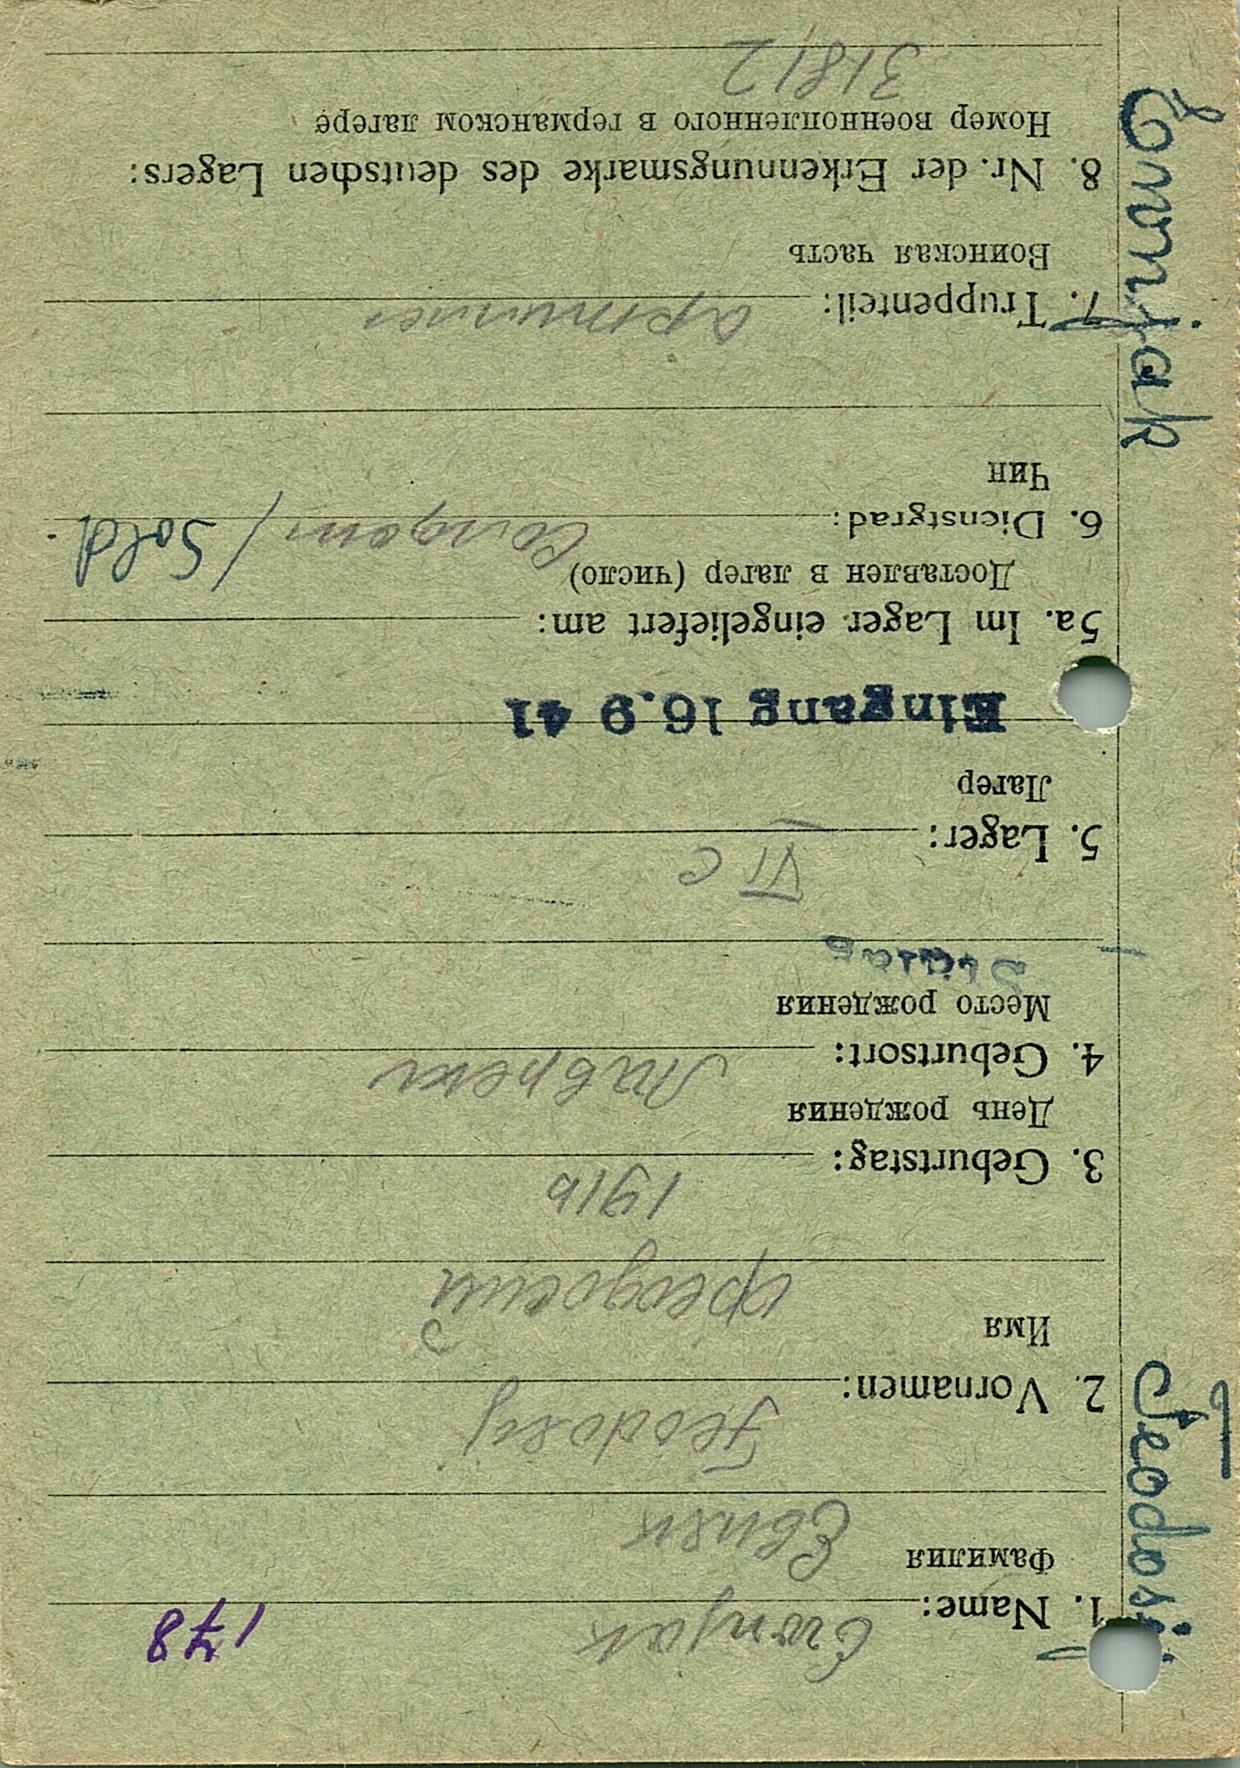 178
1. Name: Ewnjak
Фамилия Евняк
2. Vornamen: Feodosij
Имя Феодосий
3. Geburtstag: 1916
День рождения
4. Geburtsort:
Место рождения
Stalag
5. Lager: VI C
Лагер
Eingang 16.9 41
5a. Im Lager eingeliefert am:
Доставлен в лагер (число)
6. Dienstgrad: / Sold.
Чин
7. Truppenteil:
Воинская часть
8. Nr. der Erkennungsmarke des deutschen Lagers:
Номер военнопленного в германском лагере
31812
Ewnjak
Feodosij